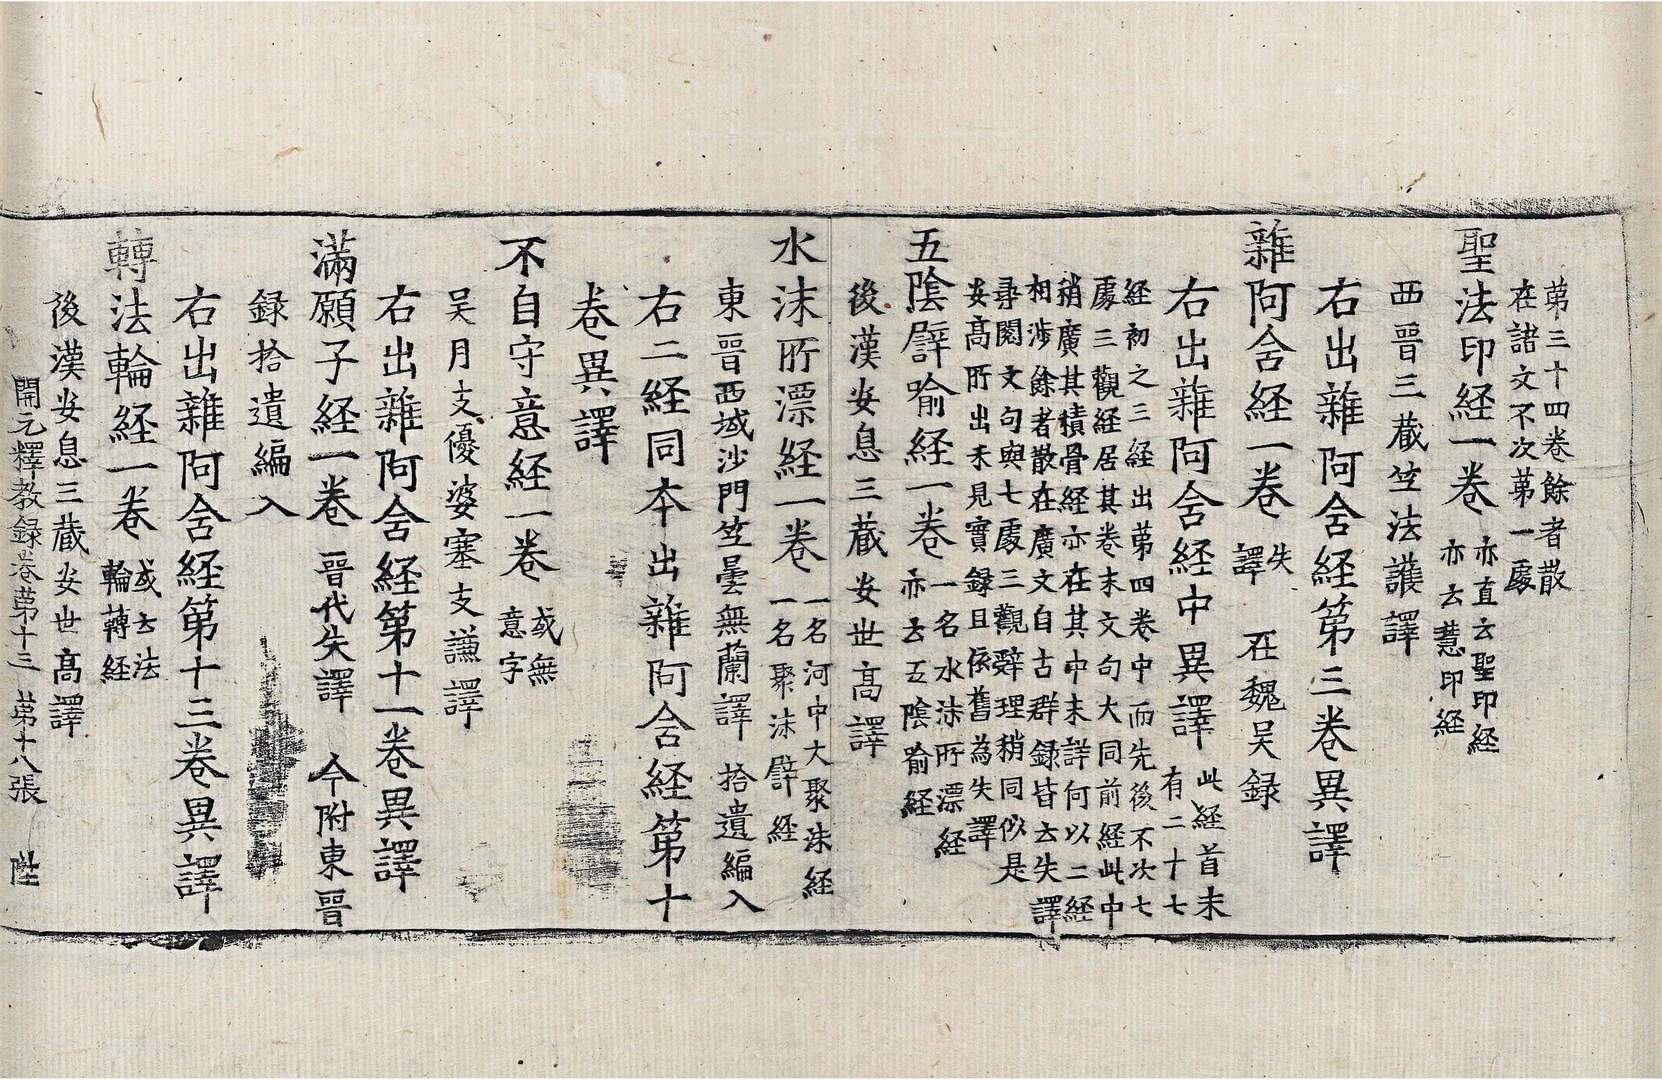 苐三十四卷餘者散
在諸文不次苐一處
聖法印経一卷 亦直云聖印経
亦云慧印経
西晋三藏竺法護譯
右出雜阿含経第三卷異譯
雜阿含経一卷 失
譯 在魏吴録
右出雜阿含経中異譯 此経首末
有二十七
経初之三経出苐四卷中而先後不次七
處三觀経居其卷末文句大同前経此中
稍廣其積骨経亦在其中未詳何以二経
相涉餘者散在廣文自古群録皆云失譯
尋閱文句與七處三觀辝理稍同似是
安髙所出未見實録且依舊為失譯
五隂譬喻経一卷 一名水沫所漂経
亦云五隂喻経
後漢安息三藏安世髙譯
水沫所漂経一卷 一名河中大聚沫経
一名聚沫譬経
東晋西域沙門竺曇無蘭譯 拾遺編入
右二経同本出雜阿含経第十
卷異譯
不自守意経一卷 或無
意字
吴月支優婆塞支謙譯
右出雜阿含経第十一卷異譯
滿願子経一卷 晋代失譯 今附東晋
録拾遺編入
右出雜阿含経第十三卷異譯
轉法輪経一卷 或云法
輪轉経
後漢安息三藏安世髙譯
開元釋教録卷苐十三 苐十八張 陛